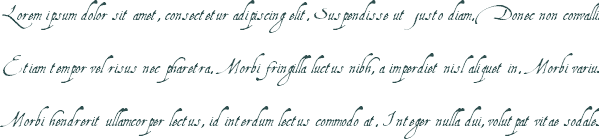 Lorem ipsum dolor sit amet, consectetur adipiscing elit. Suspendisse ut justo diam. Donec non convalli
Etiam tempor vel risus nec pharetra. Morbi fringilla luctus nibh, a imperdiet nisl aliquet in. Morbi variu
Morbi hendrerit ullamcorper lectus, id interdum lectus commodo at. Integer nulla dui, volutpat vitae sodale